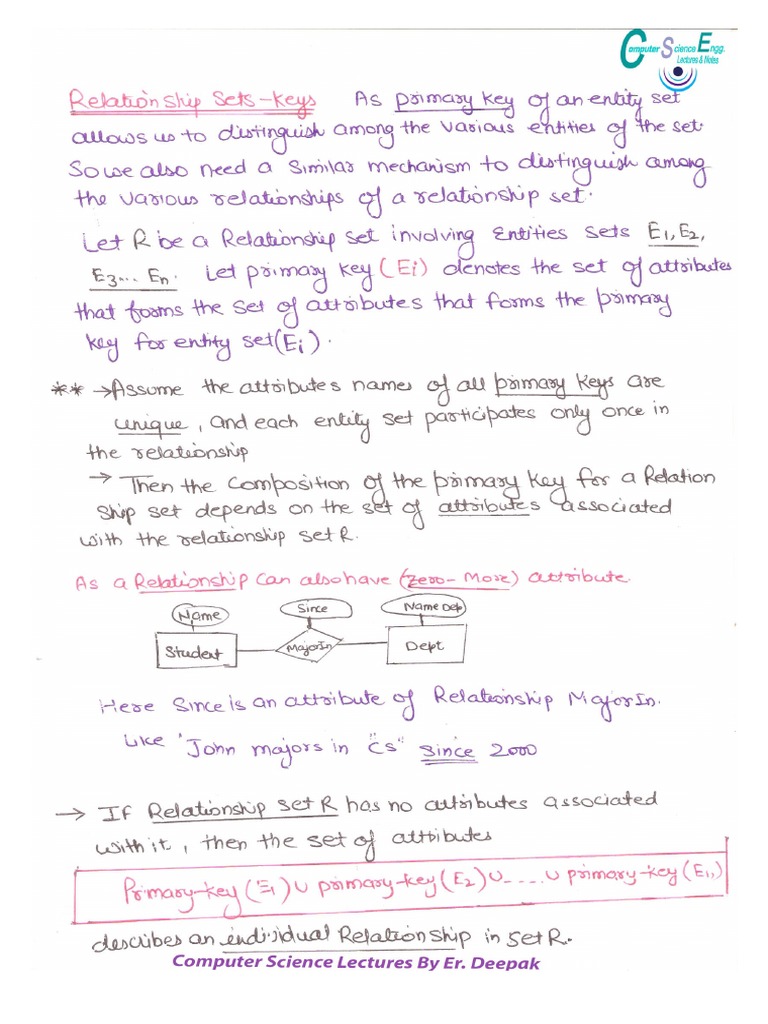 Computer Science Engg.
Lectures & Notes
Relationship Sets-Keys As primary key of an entity set
allows us to distinguish among the various entities of the set.
So we also need a similar mechanism to distinguish among
the various relationships of a relationship set.
Let R be a Relationship set involving Entities sets E1, E2,
E3... En. Let primary key (Ei) denotes the set of attributes
that forms the set of attributes that forms the primary
key for entity set (Ei).
** → Assume the attributes names of all primary keys are
unique, and each entity set participates only once in
the relationship
→ Then the composition of the primary key for a Relation
ship set depends on the set of attributes associated
with the relationship set R.
As a Relationship can also have (Zero-More) attribute.
Name Since Name Dep
Student MajorIn Dept
Here Since is an attribute of Relationship MajorIn.
Like "John majors in "CS" Since 2000
→ If Relationship set R has no attributes associated
with it, then the set of attributes
Primary-key (E1) ∪ primary-key (E2) ∪ ..... ∪ primary-key (En)
describes an individual Relationship in set R.
Computer Science Lectures By Er. Deepak